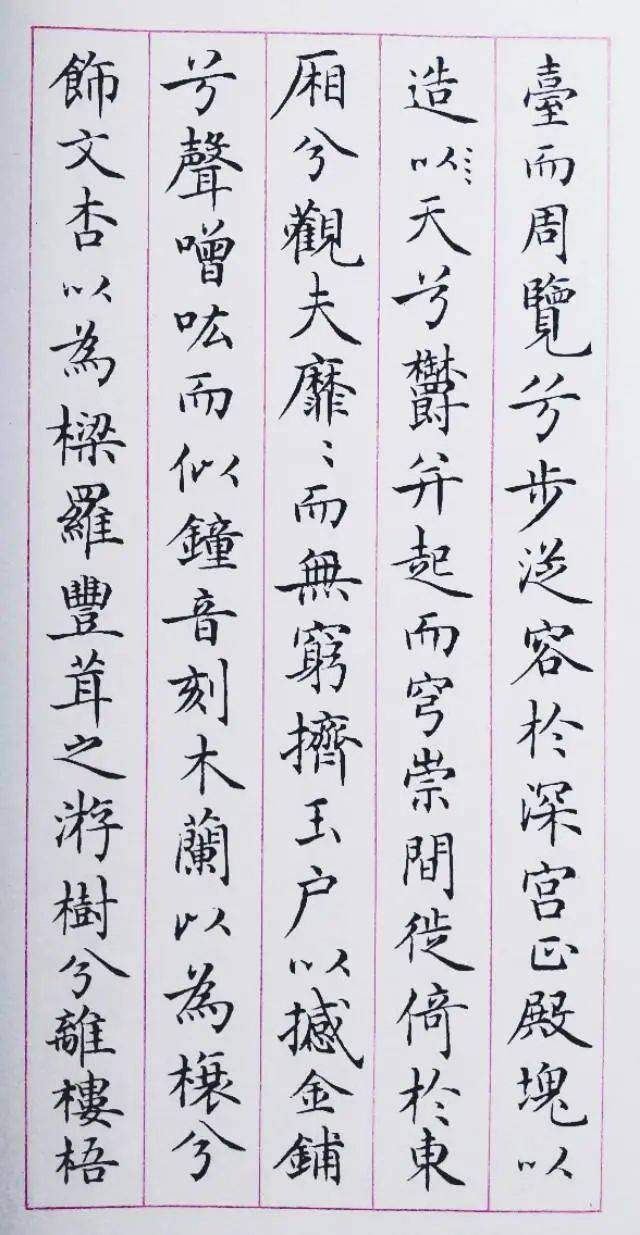 臺而周覽兮步逆容於深宮正殿塊以
造以天兮鬱并起而穹崇間徙倚於東
厢兮觀夫靡〻而無窮擠玉户以撼金鋪
兮聲噌吰而似鐘音刻木蘭以為榱兮
飾文杏以為樑羅豐茸之游樹兮離樓梧